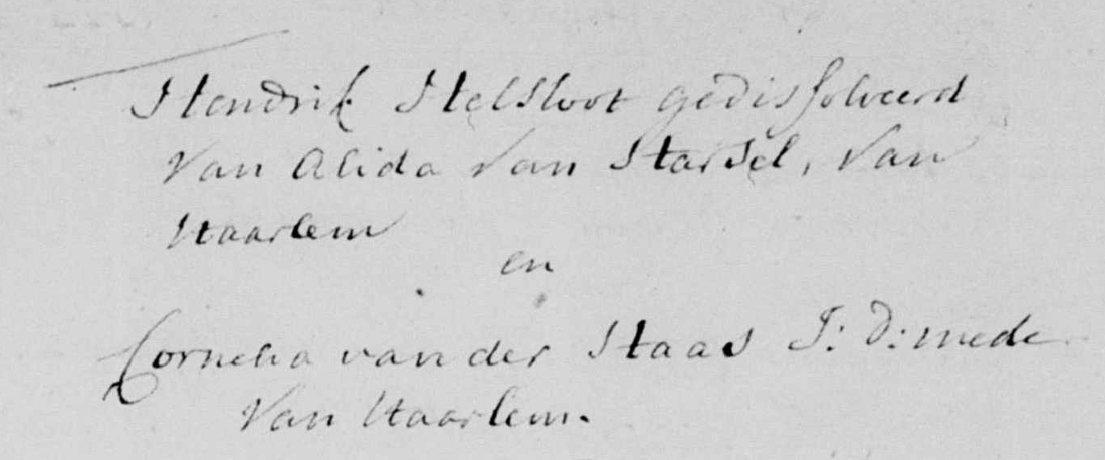 Hendrik Helsloot gedissolveerd
Van Alida Van Harsel, Van
Haarlem
en
Cornelia van der Haas J: D: mede
Van Haarlem.